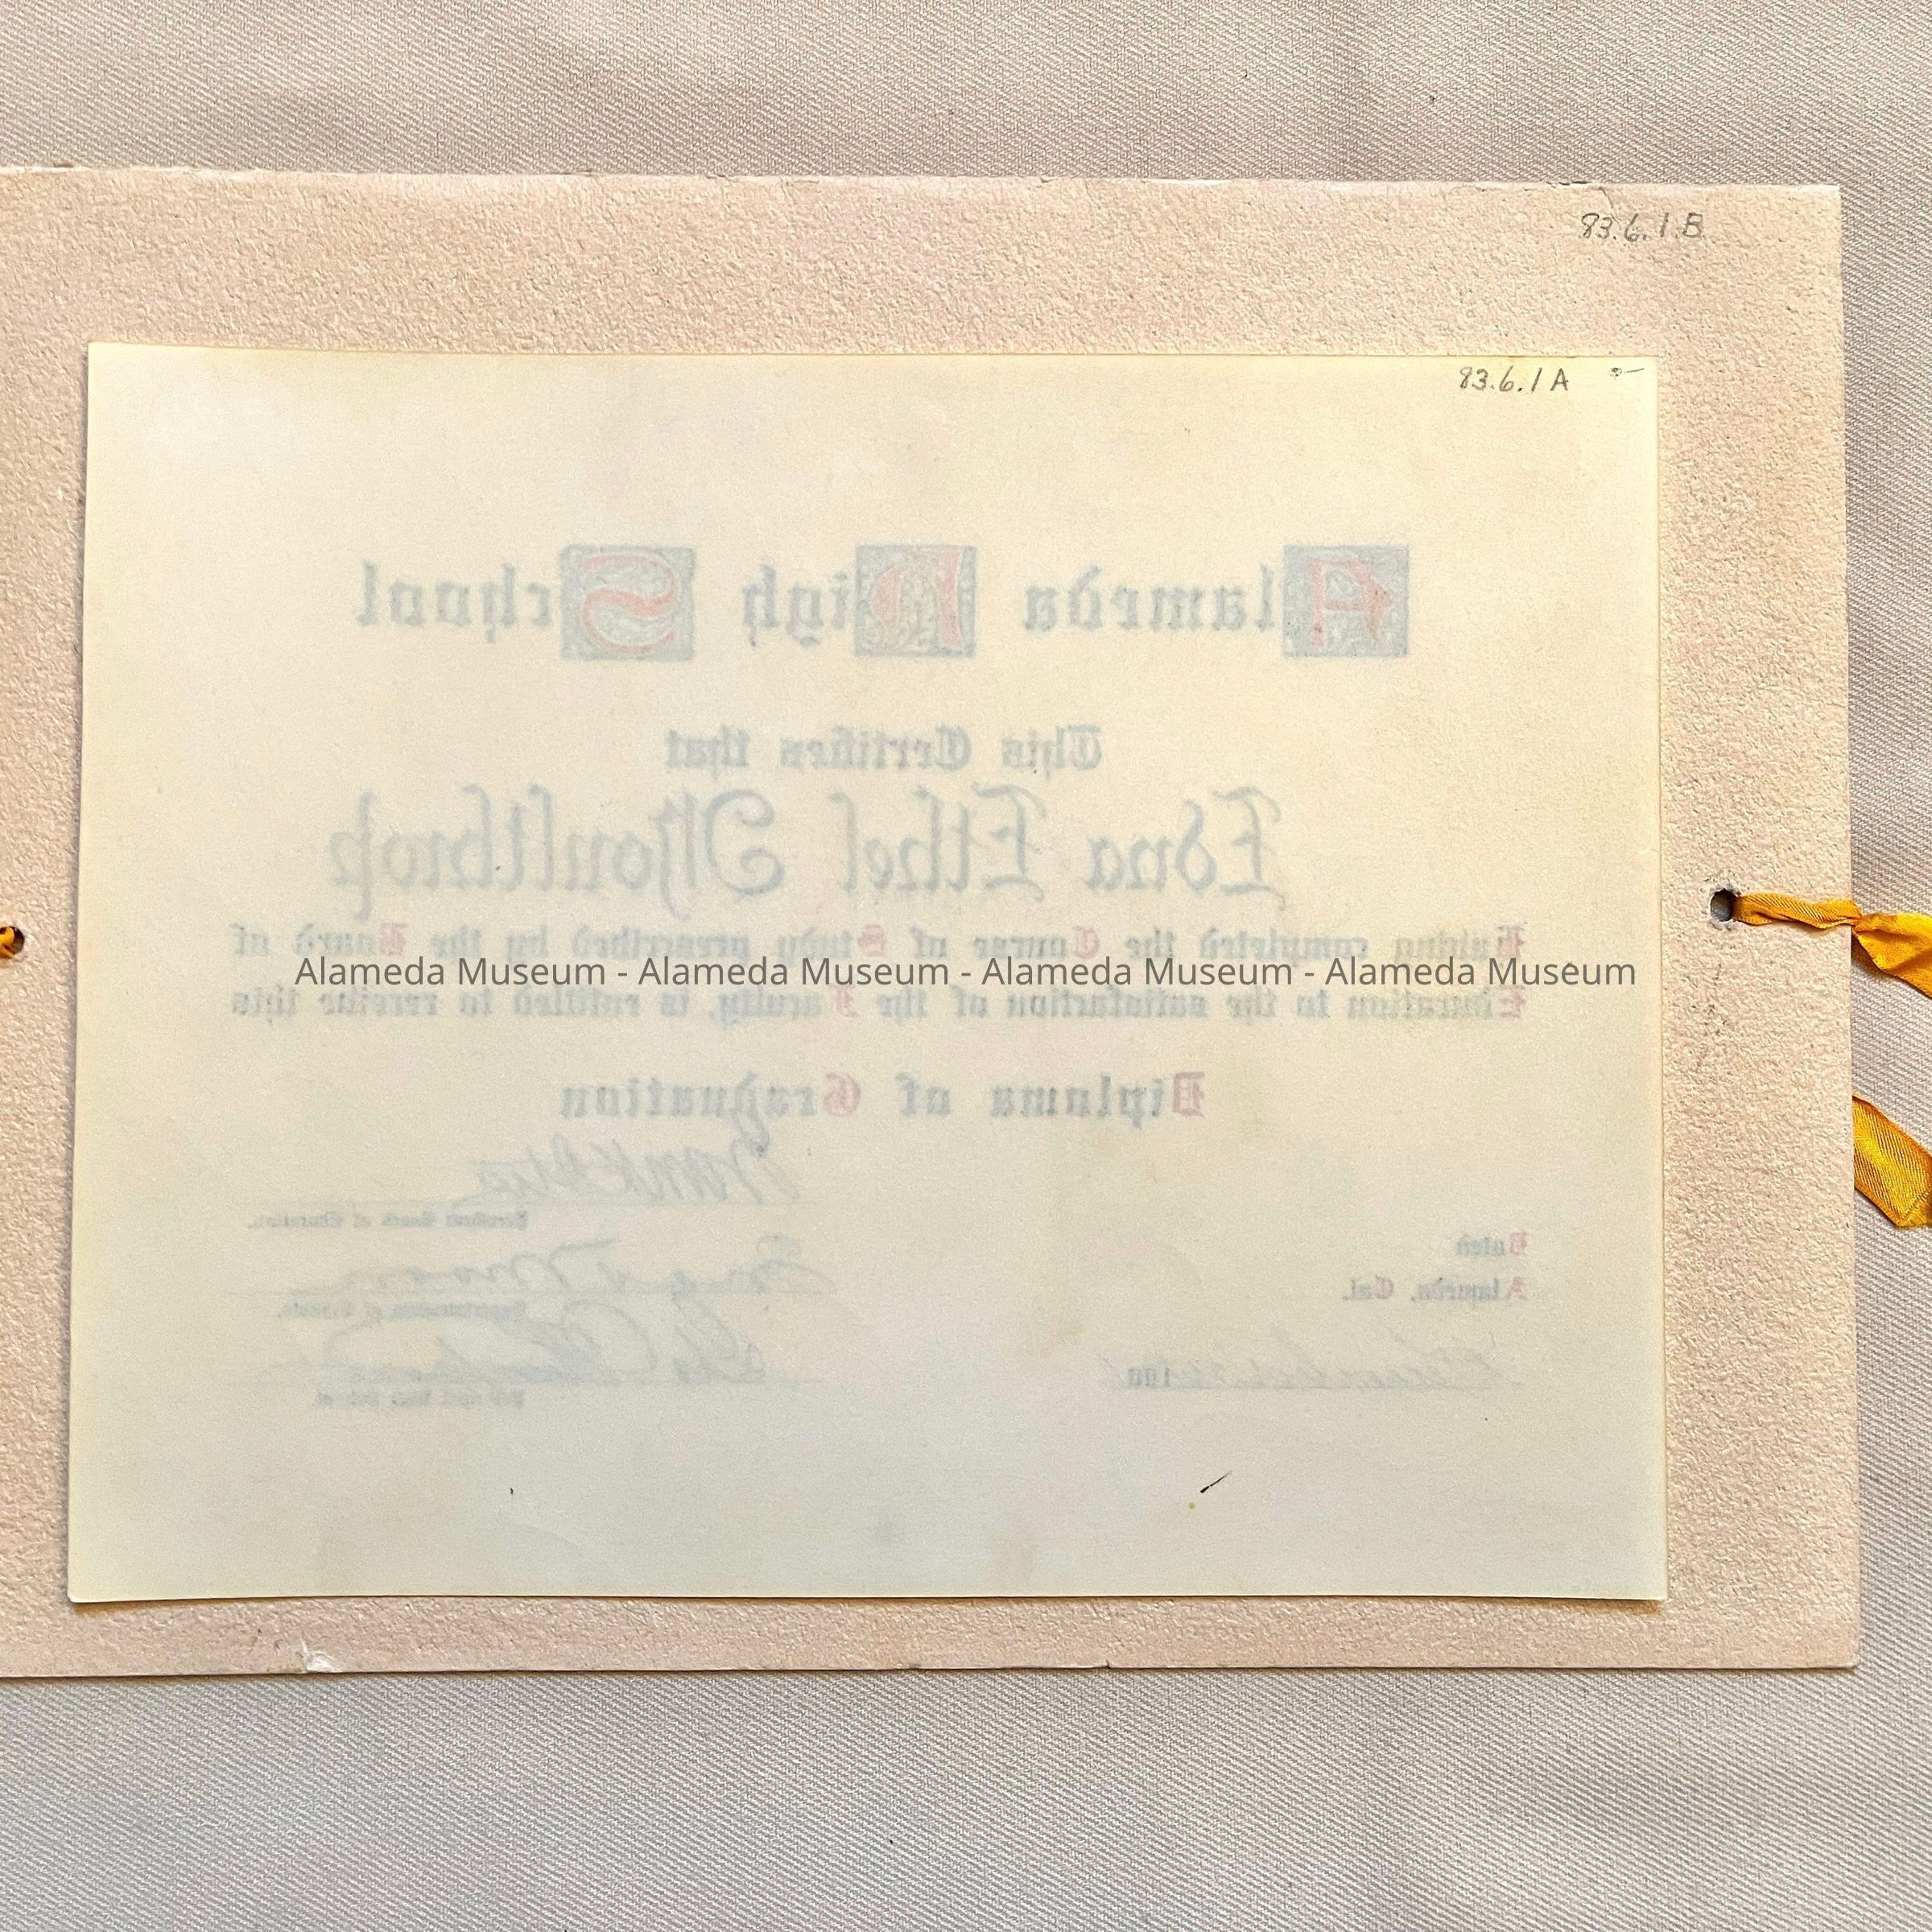 83.6.1 B
83.6.1 A
Alameda High School
This Certifies that
Edna Ethel Moulthrop
Having completed the Course of Study prescribed by the Board of
Alameda Museum - Alameda Museum - Alameda Museum - Alameda Museum
Education to the satisfaction of the Faculty, is entitled to receive this
Diploma of Graduation
President Board of Education.
Dated
Superintendent of Schools.
Alameda, Cal.